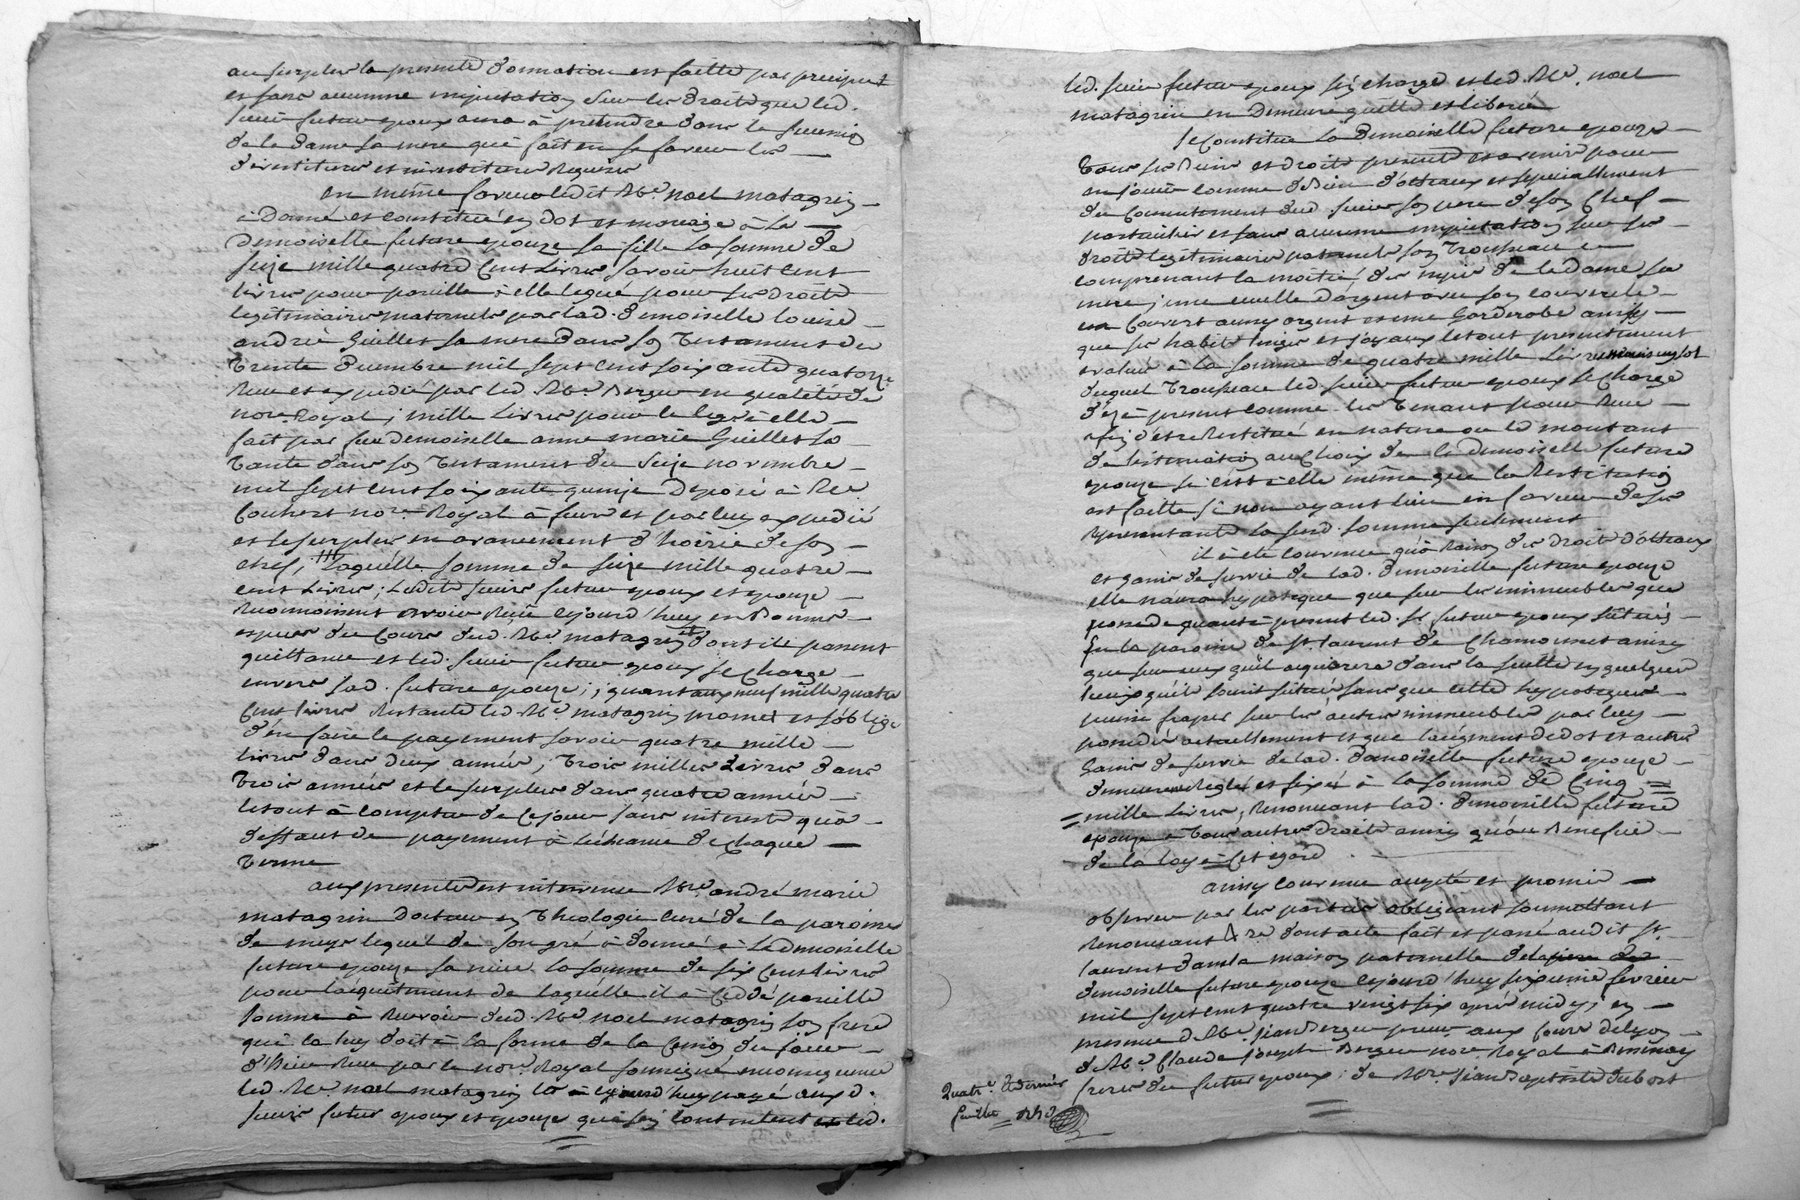 au surplus la presente donnation est faitte par preciput
et sans aucunne imputation sur les droits que led.
sieur futur epoux aura à pretendre dans la succession
de la dame sa mere qui fait en sa faveur les
devestitures et investitures requises
en même faveur ledit Me. noel matagrin
a donné et constitué en dot et mariage à la
demoiselle future epouze sa fille la somme de
seize mille quatre cent livres savoir huit cent
livres pour pareille à elle legué pour ses droits
legitimaires maternels par lad. demoiselle louise
andrée Guillet sa mere dans son testament du
trente decembre mil sept cent soixante quatorze
reçu et expedié par led. Me. Berger en qualité de
nore. Royal; mille livres pour le legs à elle
fait par feu demoiselle anne marie Guillet sa
tante dans son testament du seize novembre
mil sept cent soixante quinze deposé à Me
nore. Royal à feurs et par luy expedié
et le surplus en avancement d'hoirie de son
chef, laquelle somme de seize mille quatre
cent livres, lesdits sieurs futur epoux et epouze
reconnoissent avoir reçu cejourd'huy en bonnes
especes du cours dud. Me. matagrin dont ils passent
quittance et led. sieur futur epoux se charge
envers lad. future epouze; quant aux neuf mille quatre
cent livres restante led. Me. matagrin promet et s'oblige
d'en faire le payement savoir quatre mille
livres dans deux années, trois milles livres dans
trois années et le surplus dans quatre années
le tout à compter de ce jour sans interest qu'à
deffaut de payement à l'écheance de chaque
terme
aux presentes est intervenu Mre. andré marie
matagrin docteur en theologie curé de la paroisse
de meys lequel de son gré a donné à la demoiselle
future epouze sa niece la somme de six cent livres
pour l'acquittement de laquelle il a ceddé pareille
somme à recevoir dud. Me. noel matagrin son frere
qui la luy doit à la forme de la cession du jour
d'hier reçu par le nore. Royal soussigné en consequence
led. Me. noel matagrin l'a cejourd'huy payé aux d.
sieurs futur epoux et epouze qui s'en contentent et led.
led. sieur futur epoux s'en charge et led. Me. noel
matagrin en demeure quitte et liberé
se constitue la demoiselle future epouze
tous ses biens et droits presents et avenir pour
en jouir comme de biens dotteaux et specialement
du consentement dud. sieur son pere de son chef
particulier et sans aucunne imputation sur ses
droits legitimaires paternels son trousseau en
comprenant la moitié des nipes de la dame sa
mere, une ecuelle d'argent avec son couvercle
un couvert aussy argent et une garderobe aussy
que ses habits linges et joyaux le tout presentement
evalué à la somme de quatre mille livres
duquel trousseau led. sieur futur epoux se charge
dez à present comme les tenant pour reçu
afin d'etre restitué en nature ou led montant
de l'estimation au choix de la demoiselle future
epouze si c'est à elle même que la restitution
est faitte si non ayant lieu en faveur de ses
representants la susd. somme seulement
il a été convenu qu'à raison des droits dotteaux
et gains de survie de lad. demoiselle future epouze
elle n'aura hypoteque que sur les immeubles que
possede quant à present led. sr. futur epoux situés
sur la paroisse de st. laurent de chamousset aussy
que sur ceux qu'il acquerera dans la suitte en quelques
lieux qu'ils soient situés sans que cette hypoteque
puisse fraper sur les autres immeubles par luy
possedés actuellement et que l'augment de dot et autres
gains de survie de lad. demoiselle future epouze
demeurent reglés et fixés à la somme de cinq
mille livres, renonçant lad. demoiselle future
epouze à tous autres droits aussy qu'au benefice
de la loy à cet egard
ainsy convenu accepté et promis
observer par les parties obligeant soumettant
renonçant & re dont acte fait et passé audit st.
laurent dans la maison paternelle de la
demoiselle future epouze cejourd'huy sixieme fevrier
mil sept cent quatre vingt six après midy; en
presence de Me. jean Berger
de Me. Claude joseph Berger nore. Royal à
freres du futur epoux; de Mre. jean Baptiste dubost
Quatre. et derniere
feuillet